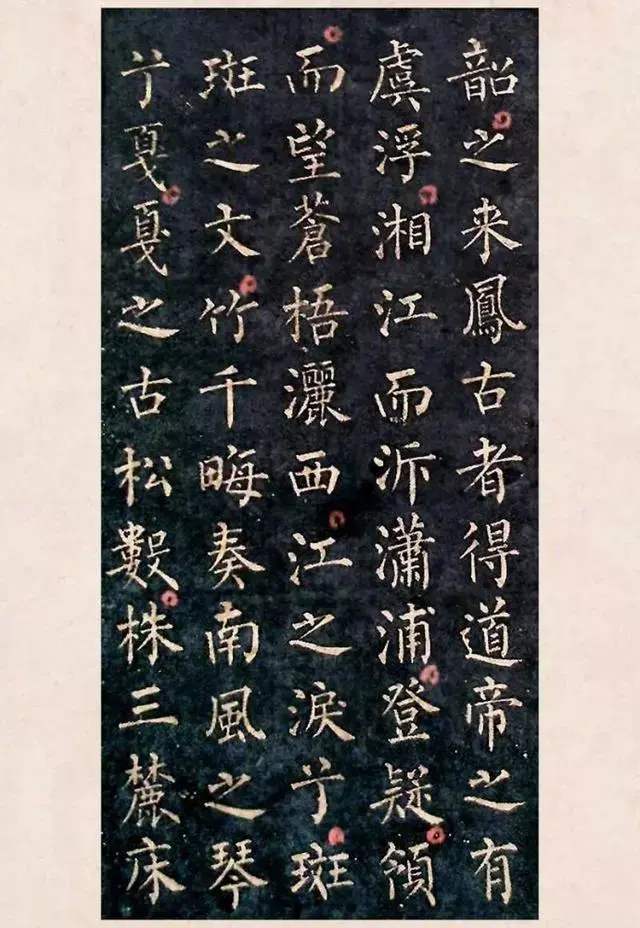 韶之来鳳古者得道帝之有
虞浮湘江而泝瀟浦登疑領
而望蒼梧灑西江之淚兮斑
斑之文竹千畮奏南風之琴
兮戛戛之古松數株三麓床